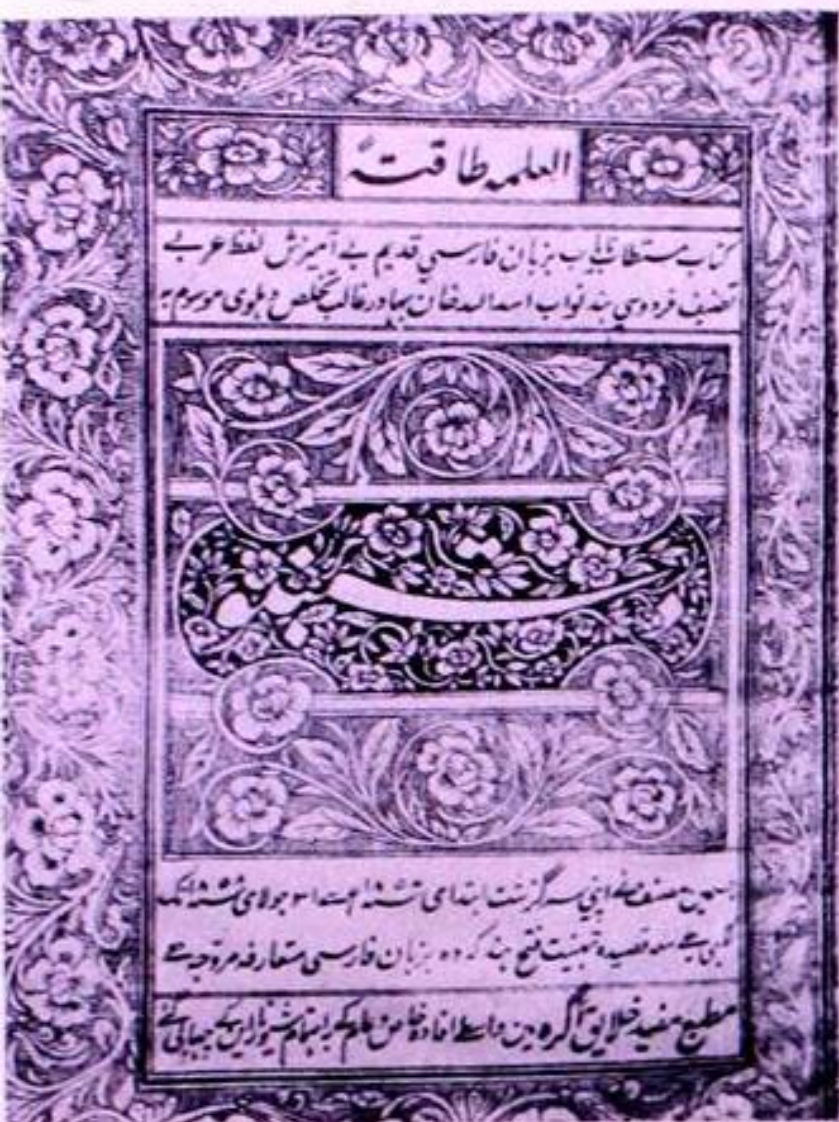 العلمہ طاقتہ
کتاب مستطاب نایاب بزبان فارسی قدیم بے آمیزش لفظ عربے
تصنیف فردوسی ہند نواب اسد اللہ خان بہادر غالب تخلص دہلوی موسوم بہ
دستنبو
مصنف نے اپنی سرگزشت ابتدای جولای تک
لکہی ہے معہ قصیدہ تہنیت فتح ہند کہ وہ بزبان فارسی متعارفہ مروجہ ہے
مطبع مفید خلایق آگرہ مین واسطے افادہ خاص و عام کے باہتمام شیونراین کے چہاپی گئے